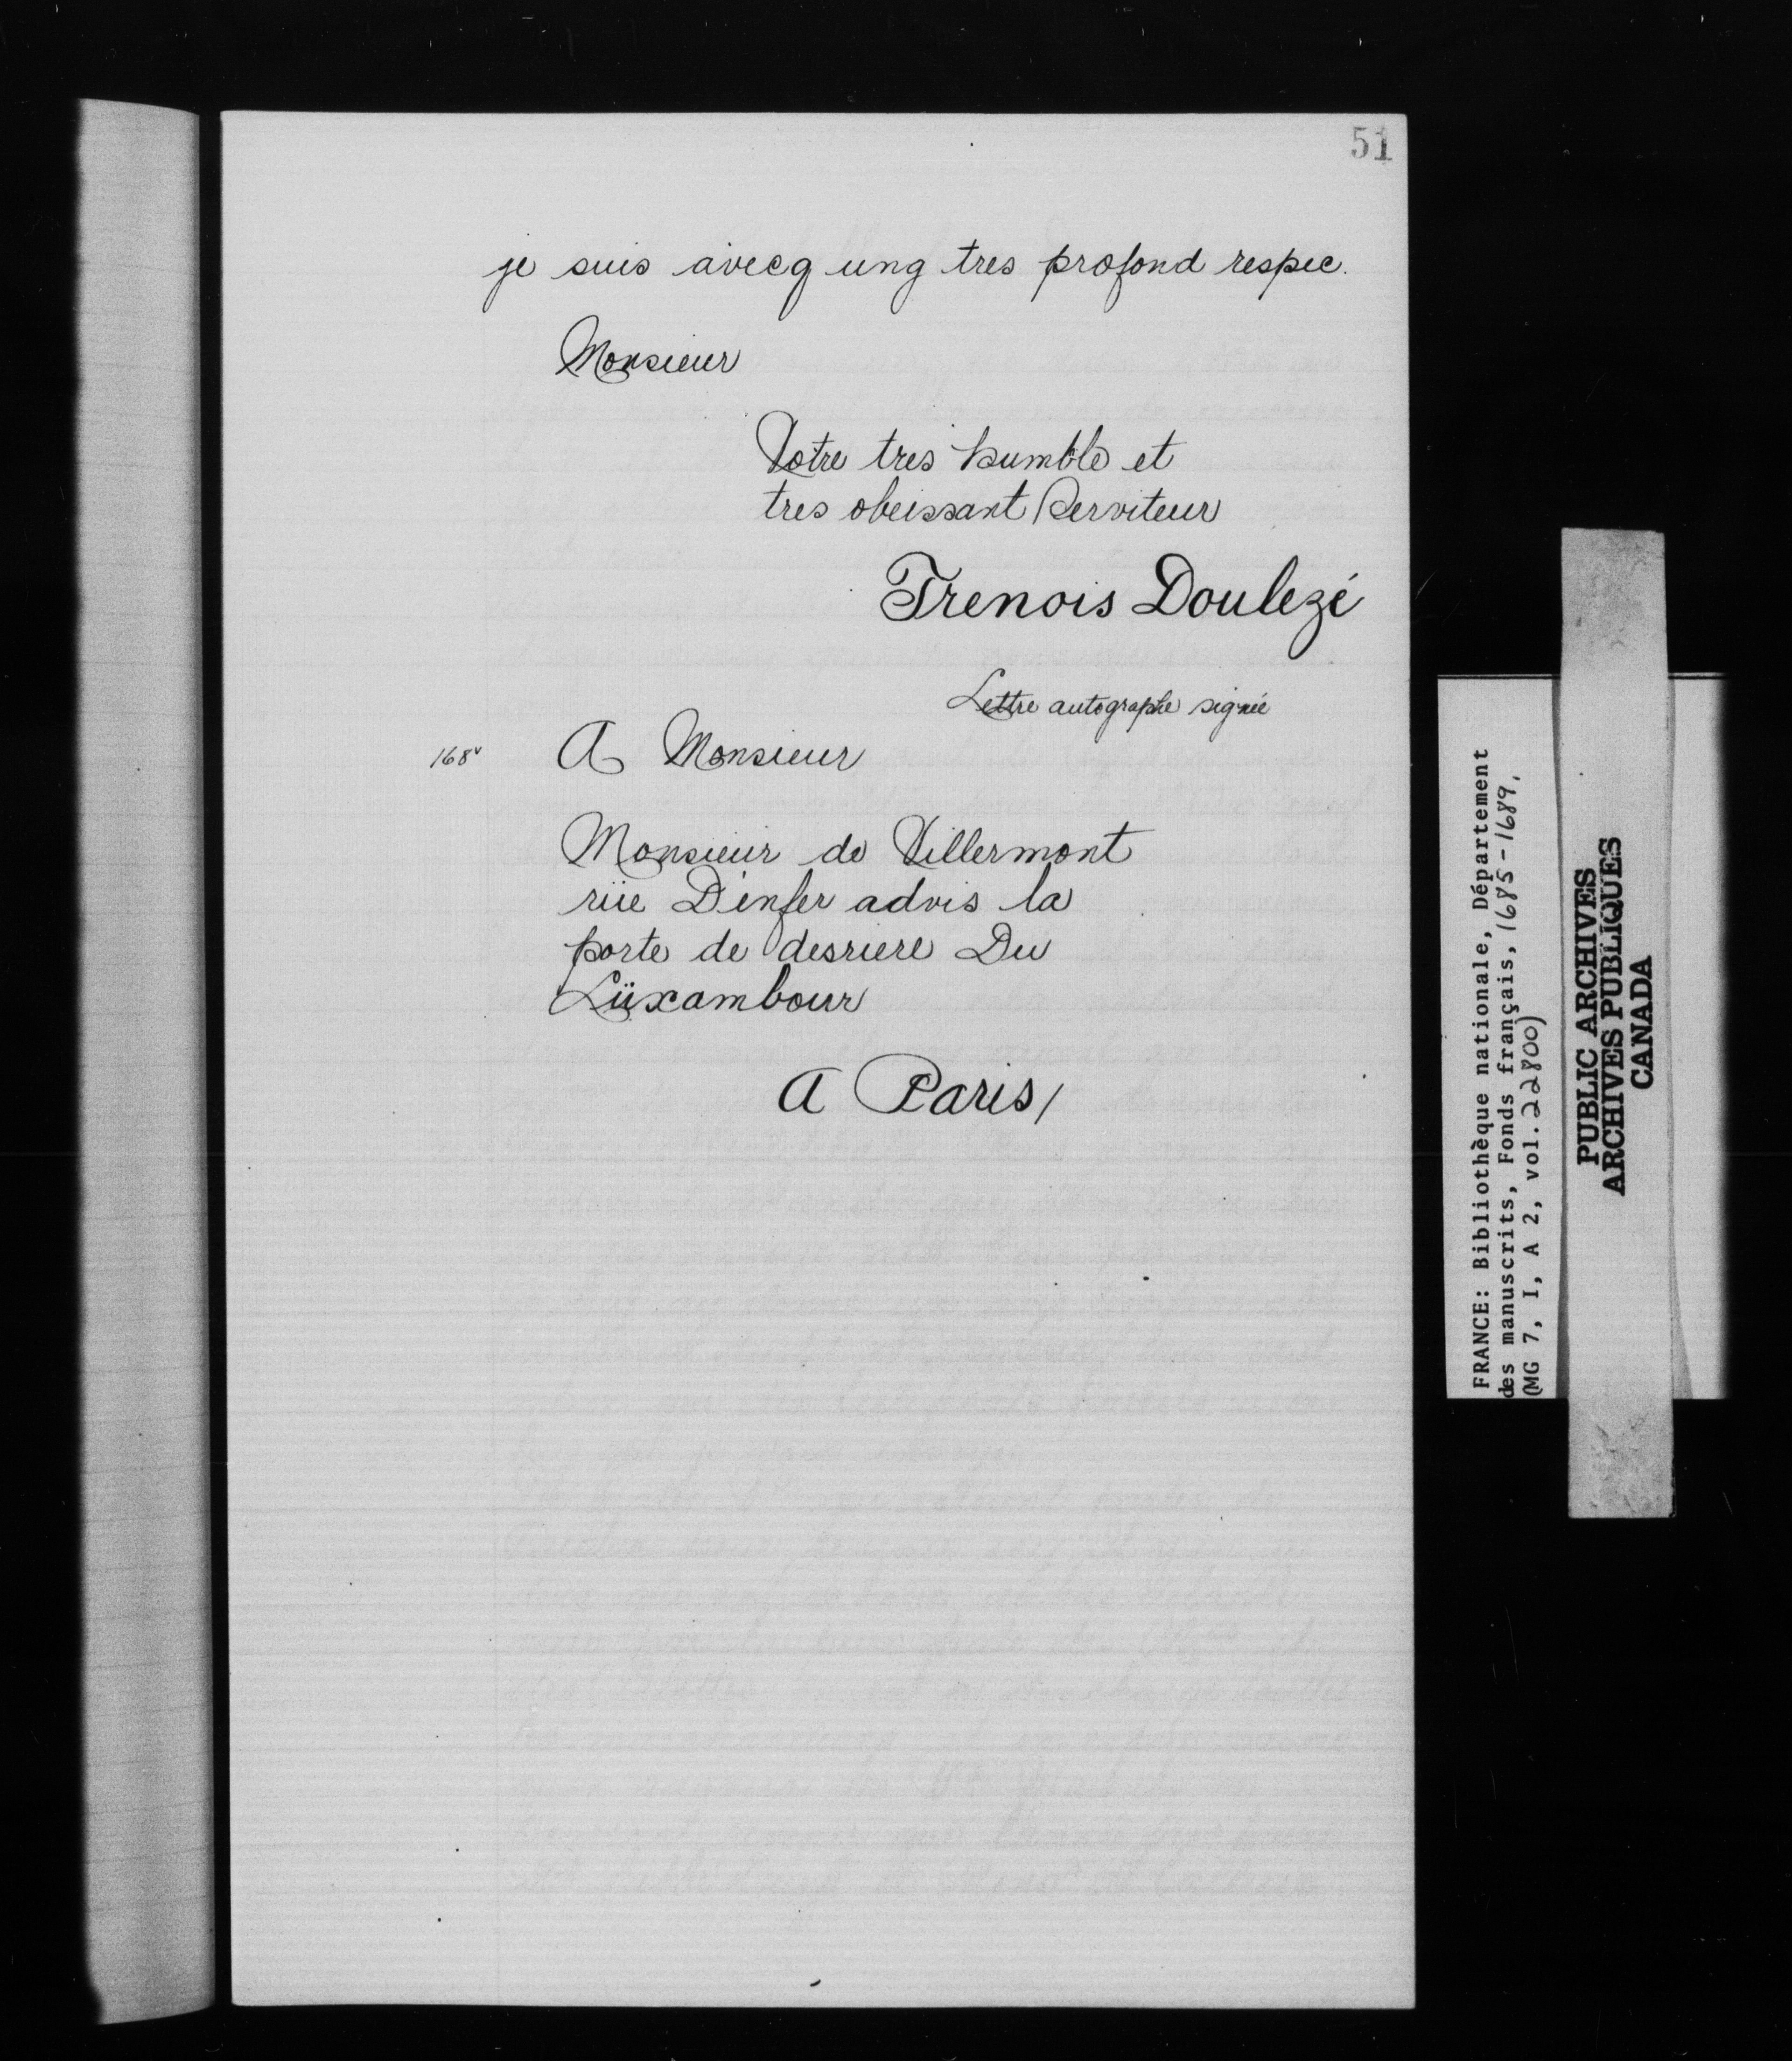 51
je suis avecq ung tres profond respec.
Monsieur
Votre tres humble et
tres obeissant Serviteur
Frenois Doulezé
Lettre autographe signée
168v A Monsieur
Monsieur de Villermont
rüe D'enfer advis la
porte de desriere Du
Lüxambour
A Paris/
FRANCE: Bibliothèque nationale, Département
des manuscrits, Fonds français, 1685-1689.
(MG 7, I, A 2, vol. 22800)
PUBLIC ARCHIVES
ARCHIVES PUBLIQUES
CANADA